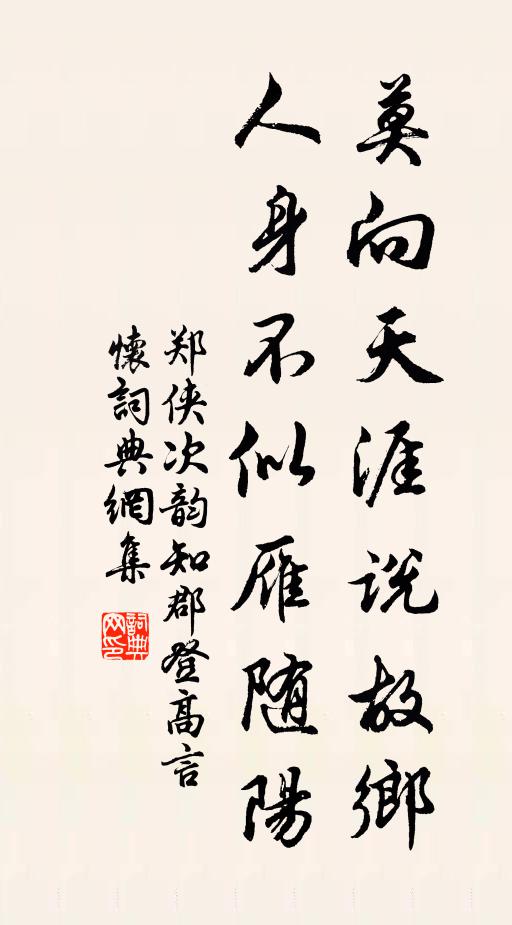 莫向天涯説故鄉
人身不似雁随陽
郑侠次韵知郡登高言
懷詞典網集
詞典
网印